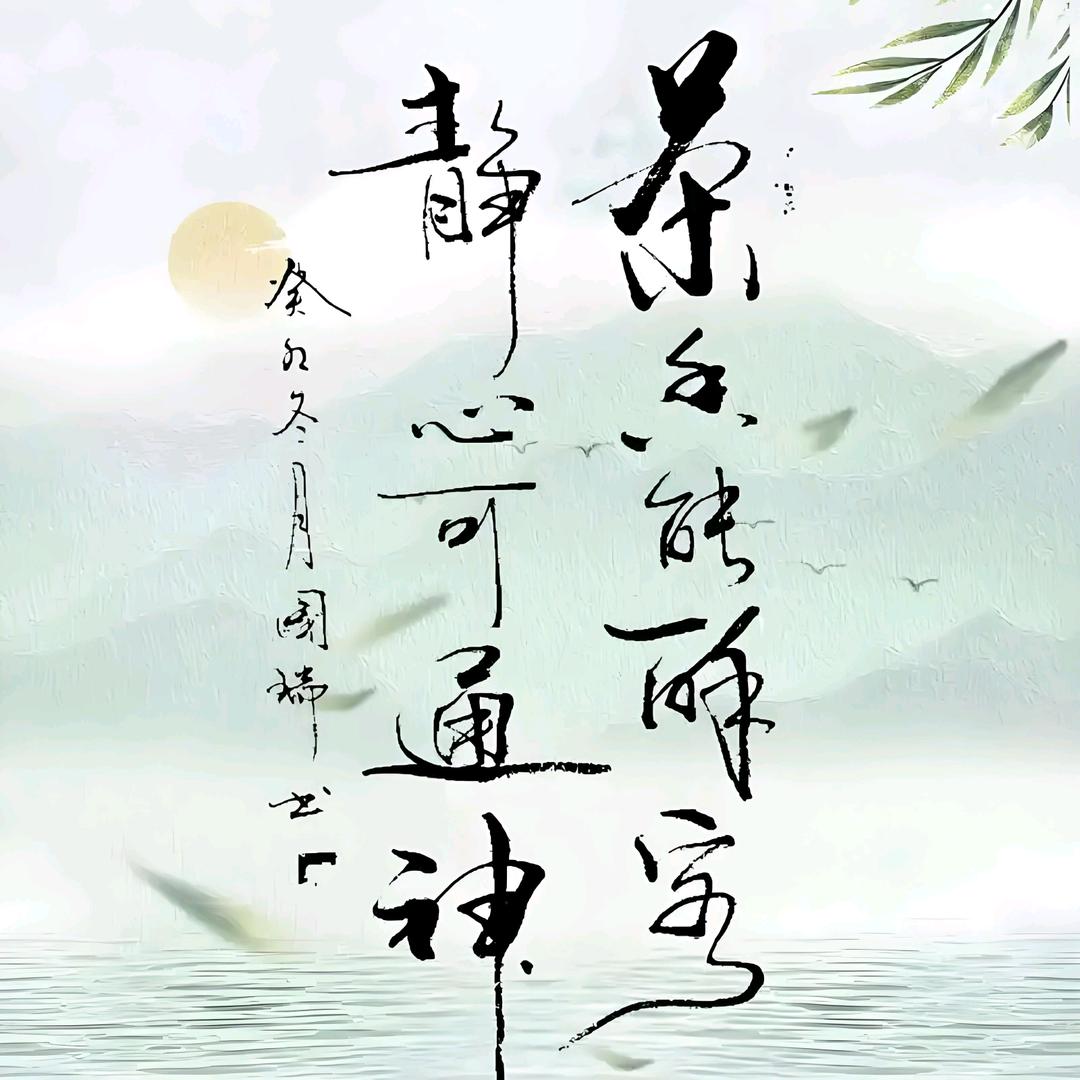 茶香能醉客
静心可通神
癸卯冬月國瑞书